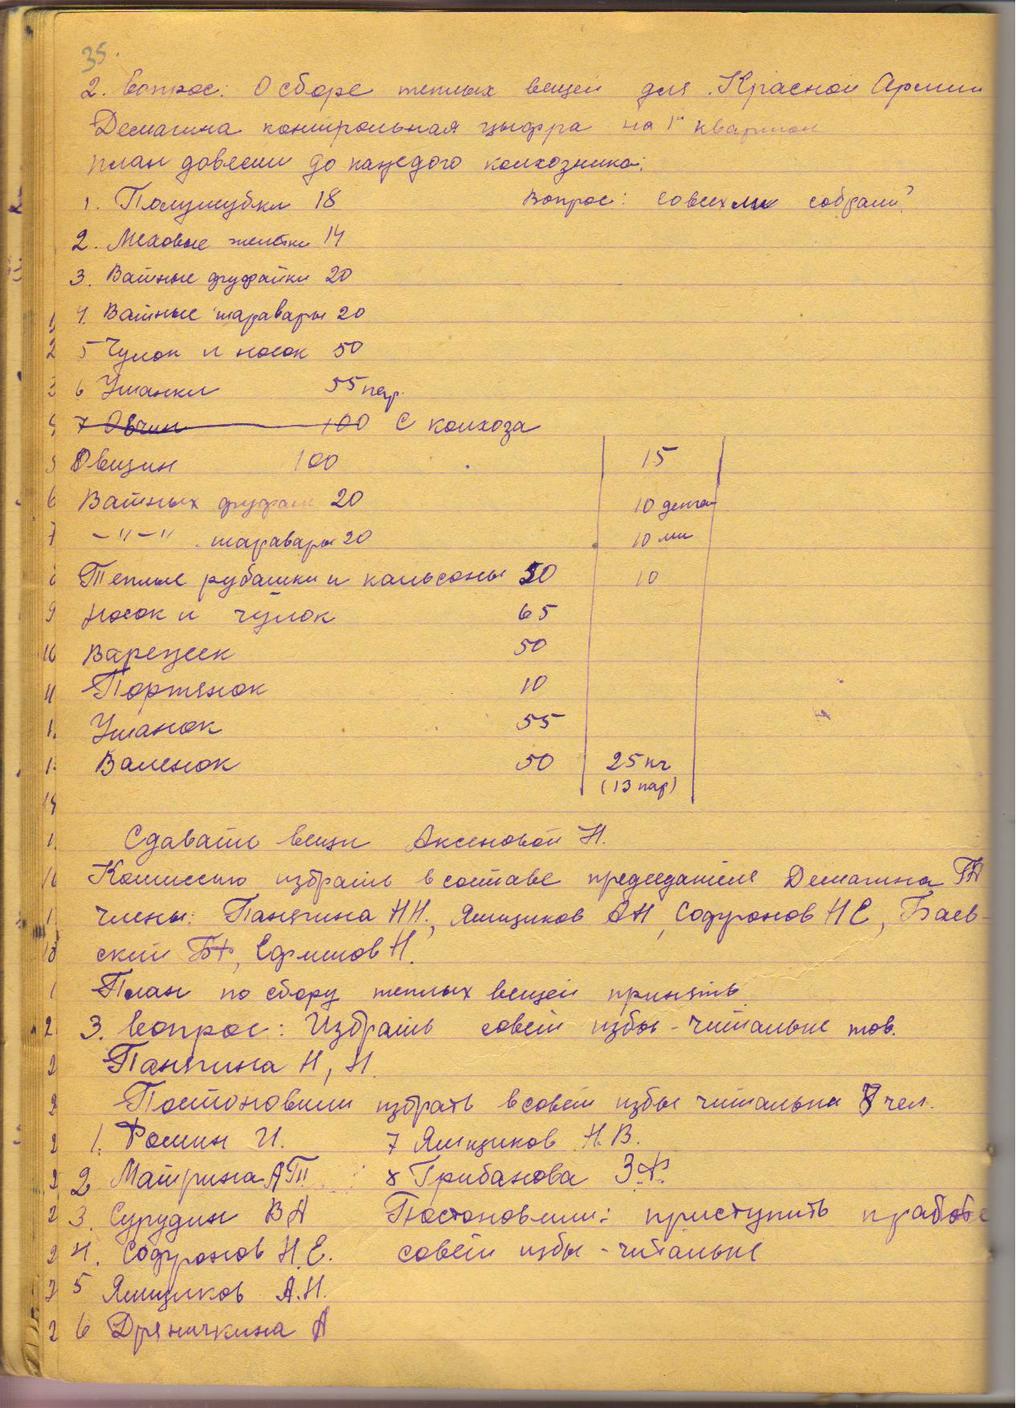 35.
2. Вопрос: О сборе теплых вещей для Красной Армии
Демагина контрольная цыфра на 1й квартал
план довести до каждого колхозника:
1. Полушубки 18 Вопрос: со всех ли собрали?
2. Меховые жилетки 14
3. Ватные фуфайки 20
4. Ватные шаравары 20
5 Чулок и носок 50
6 Ушанки 55 пар.
7 Овчин 100 С колхоза
Овщин 100 15
Ватных фуфаек 20 10
-"-" шаравары 20 10
Теплые рубашки и кальсоны 50 10
Носок и чулок 65
Варежек 50
Портянок 10
Ушанок 55
Валенок 50 25 кг
(13 пар)
Сдавать вещи Аксеновой Н.
Комиссию избрать в составе председателя Демагина
члены: Панягина НН, Ямщиков АН, Софронов НЕ, Баев-
ский, Ефимов Н.
План по сбору теплых вещей принять
3. Вопрос: Избрать совет избы-читальне тов.
Панягина Н, Н.
Постоновили избрать в совет избы читальни 8 чел.
1. Фомин И. 7 Ямщиков Н.В.
2 Матрина АП 8 Грибанова З.Ф.
3. Сурудин ВА Постоновили: приступить к работе
4. Софронов Н.Е. совет избы-читальне
5 Ямщиков А.Н.
6 Дряничкина А